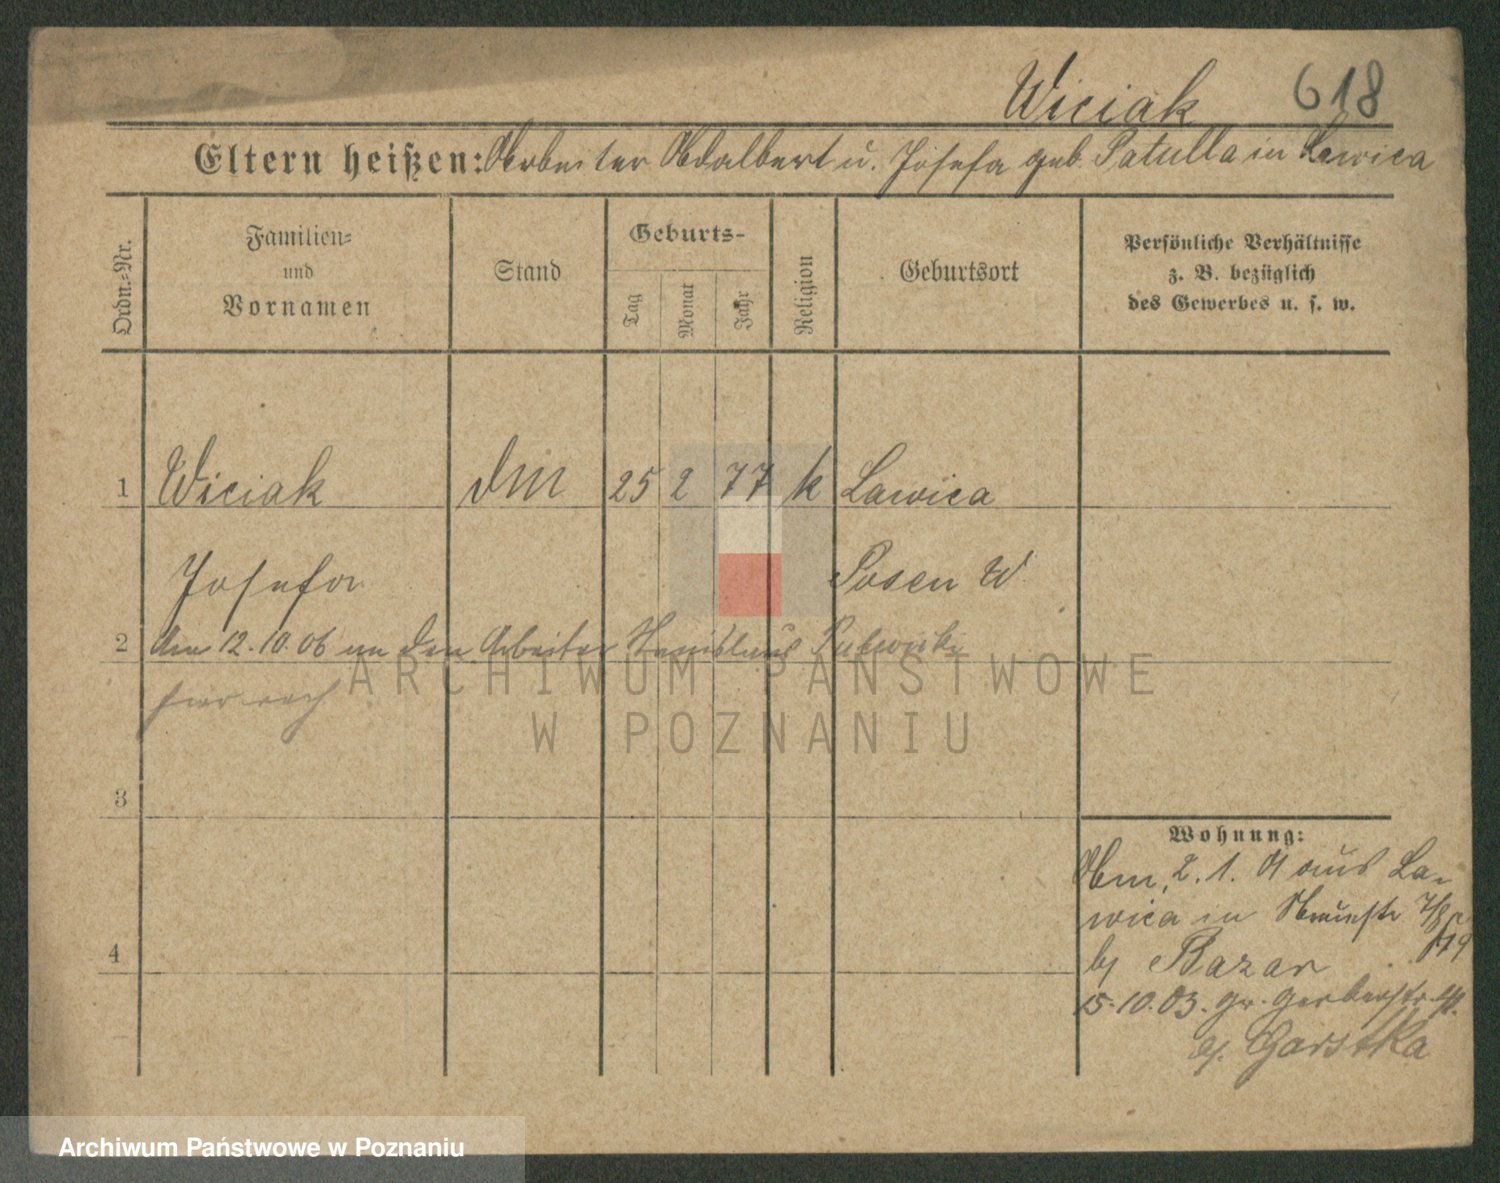 Wiciak 618
Eltern heißen: Arbeiter Adalbert u. Josefa geb. Patulla in Lawica
Ordn.-Nr.
Familien-
und
Vornamen
Stand
Geburts-
Tag
Monat
Jahr
Religion
Geburtsort
Persönliche Verhältnisse
z. B. bezüglich
des Gewerbes u. s. w.
1 Wiciak 25 2 77 k Lawica
Josefa Posen W
2 am 12.10.06 an den Arbeiter Stanislaus
3
Wohnung:
2. 1. 01 aus La-
wica in 7/8
4
bj Bazar
15.10.03. Gr. Gerberstr.
bj. Garstka
ARCHIWUM PAŃSTWOWE
W POZNANIU
Archiwum Państwowe w Poznaniu